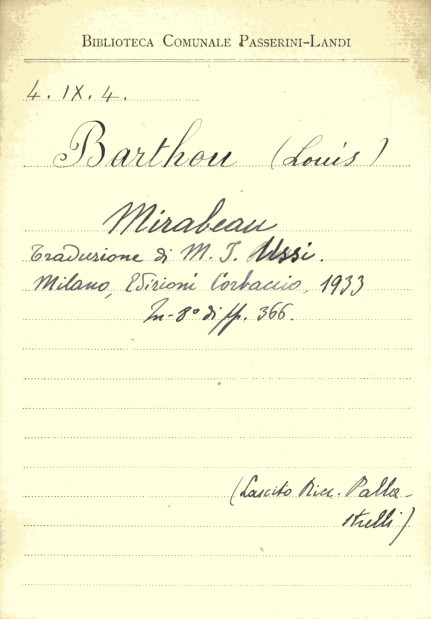 BIBLIOTECA COMUNALE PASSERINI-LANDI
4. IX. 4.
Barthou (Louis)
Mirabeau
Traduzione di M. T. Ussi.
Milano, Edizioni Corbaccio, 1933
In-8° di pp. 366.
(Lascito Ricc. Palla-
strelli)